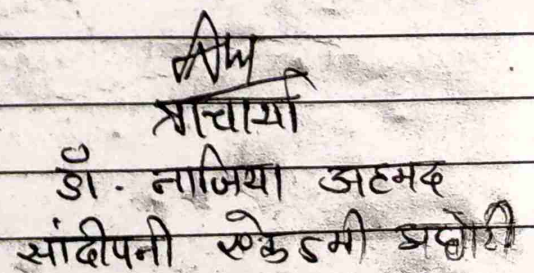 प्राचार्या
डॉ. नाजिया अहमद
सांदीपनी एकेडमी अछोटी